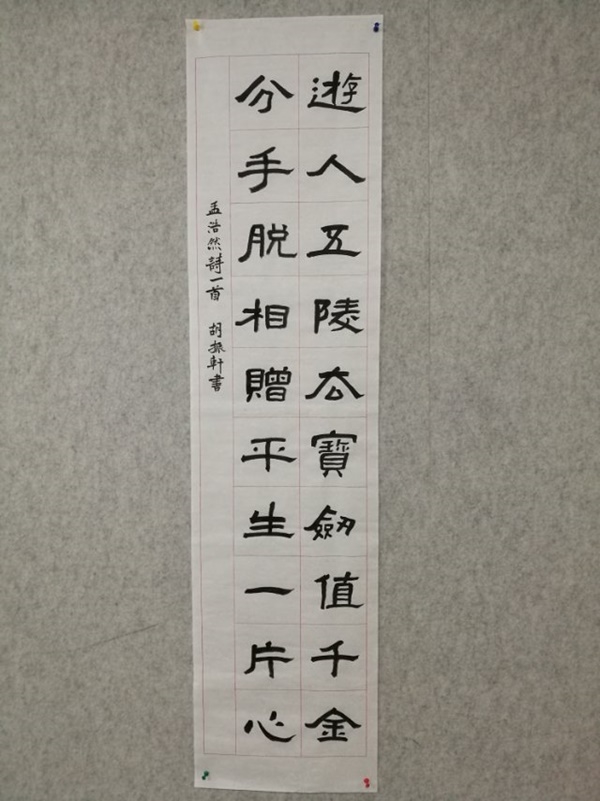 遊人五陵去寶劒值千金
分手脱相贈平生一片心
孟浩然詩一首 胡振軒書